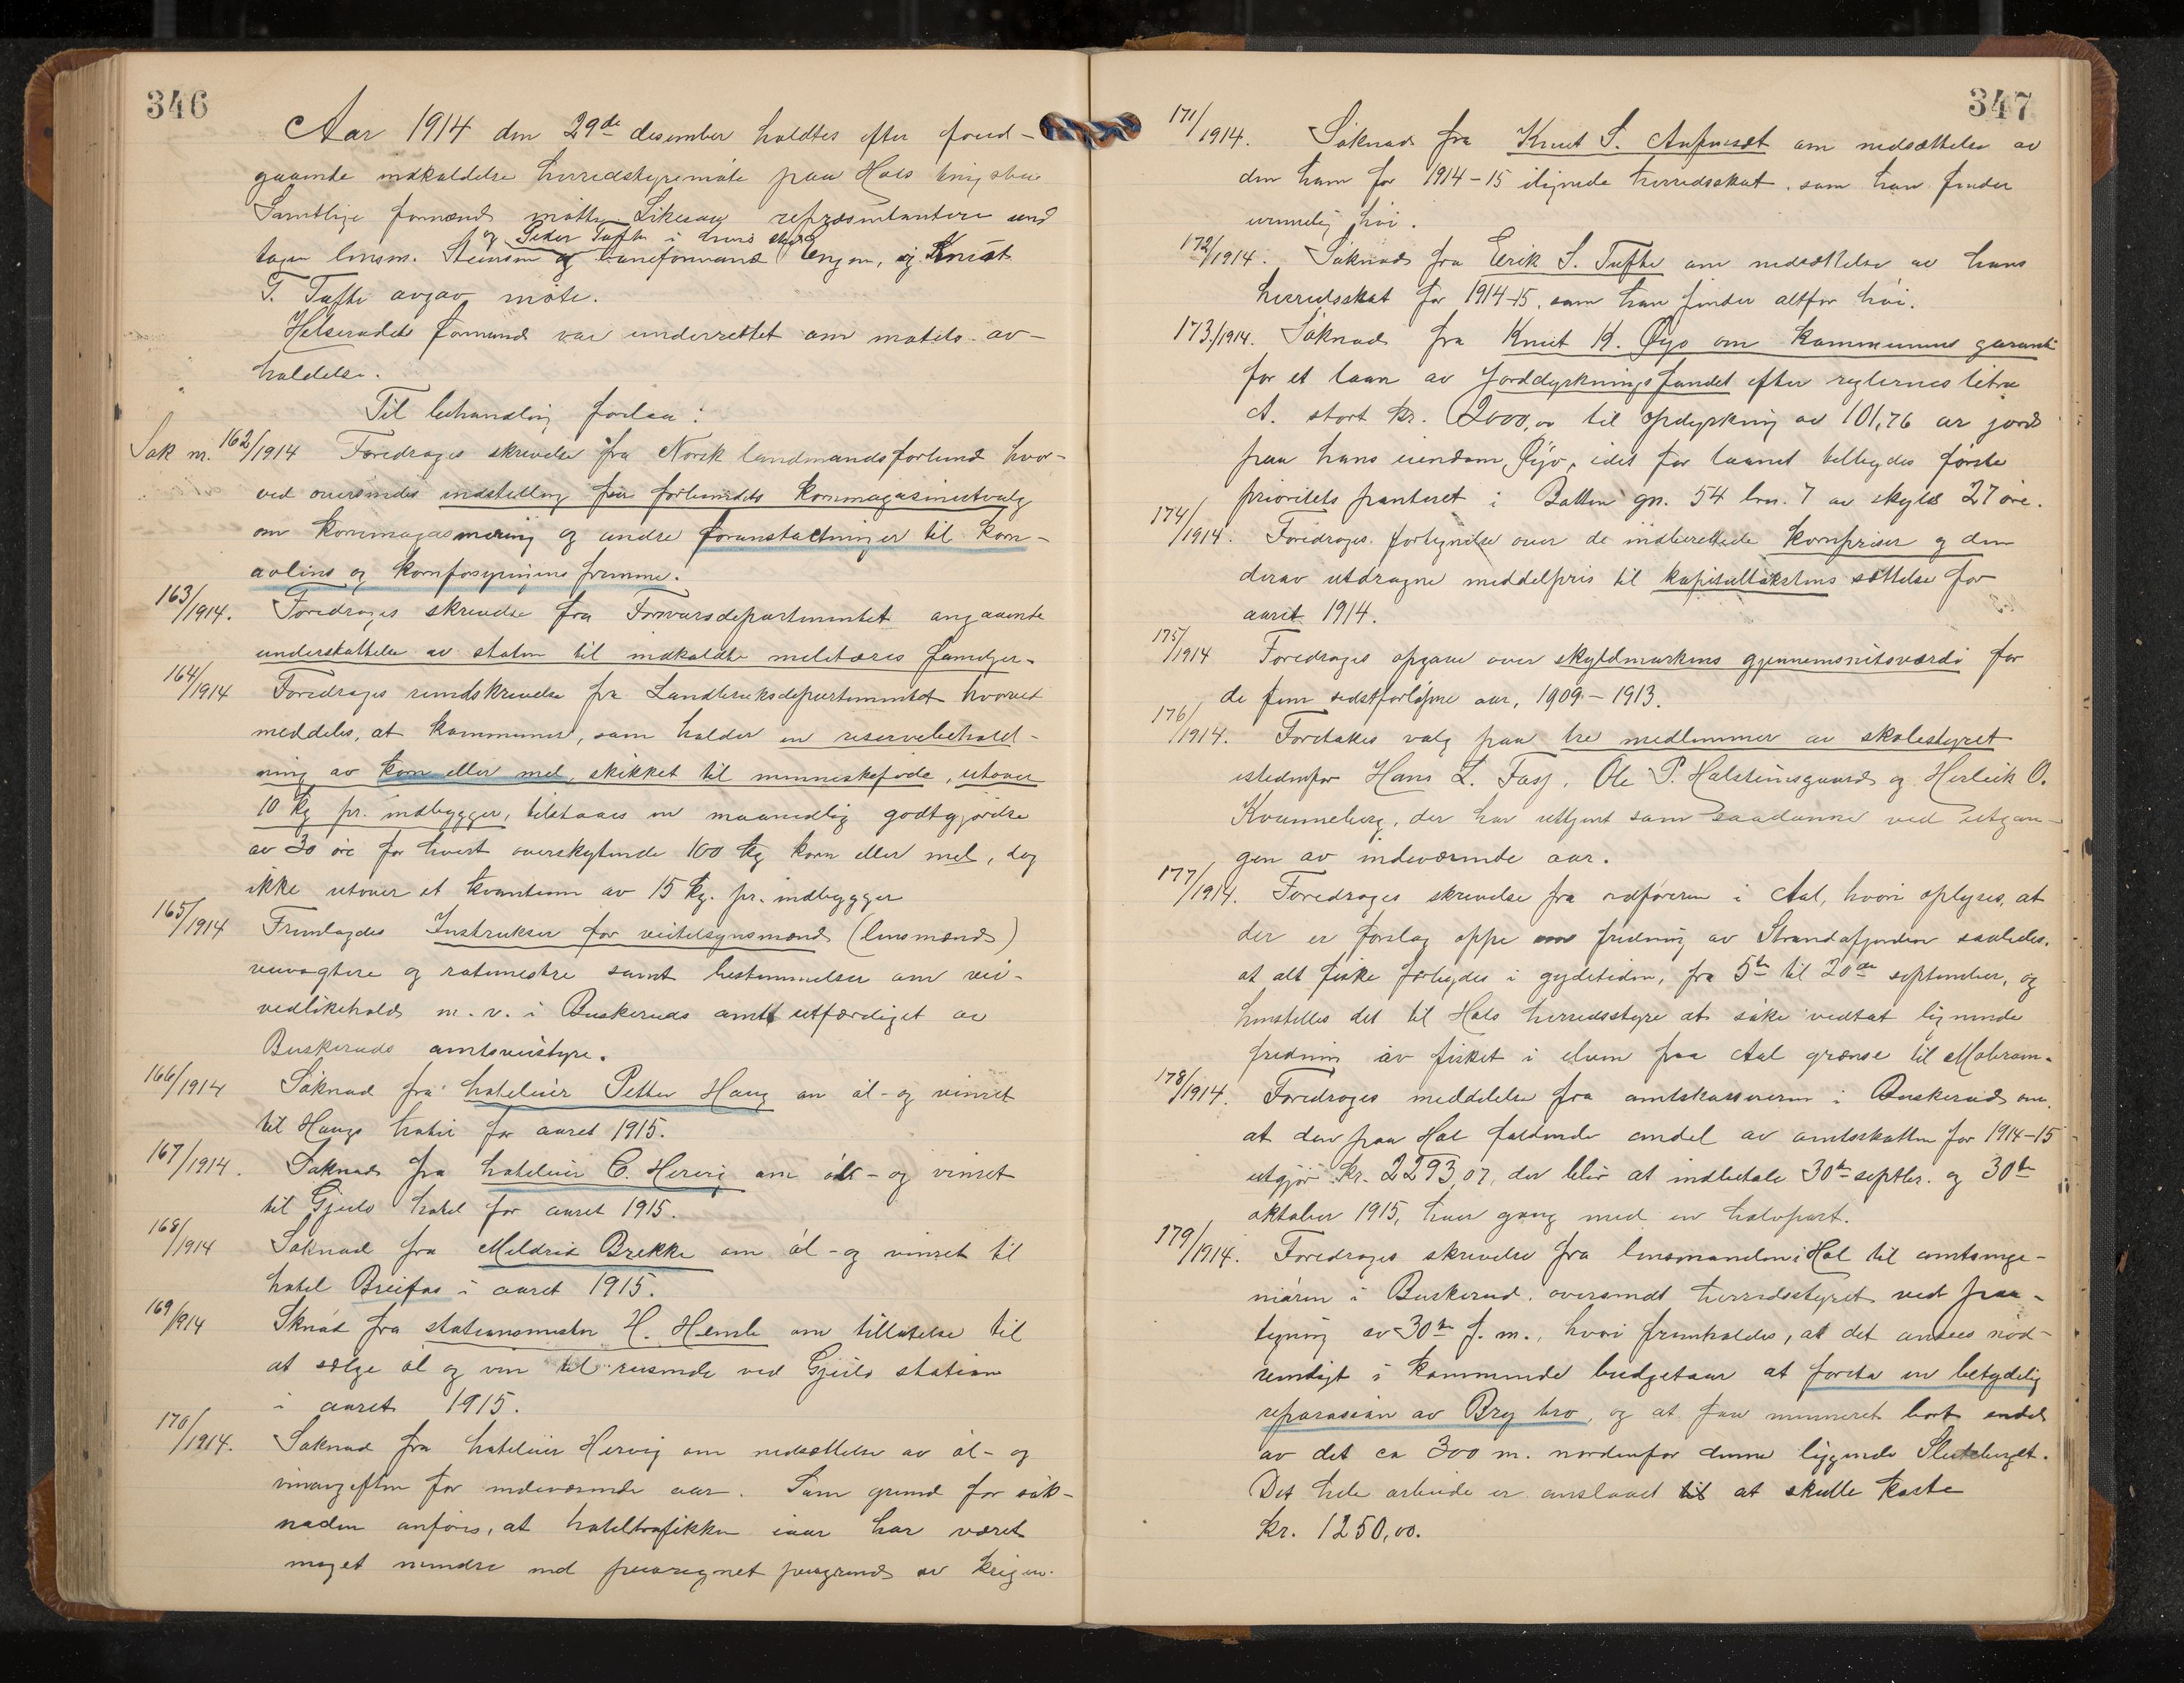 346
Aar 1914 den 29de desember holdtes efter forut-
gaaende indkaldelse herredstyremøte paa Hols tingstue
Samtlige formænd møtte. Likesaa repræsentanterne und
og Peder Tufte i hvis sted
tagen lensm. Steinsen og baneformand Engen, og Knut
T. Tufte avgav møte.
Helseraadets formand var underrettet om møtets av-
holdelse.
Til behandling forlaa:
Sak nr. 162/1914 Foredroges skrivelse fra Norsk landmandsforbund hvor-
ved oversendes indstilling fra forbundets kornmagasinutvalg
om kornmagasinering og andre foranstaltninger til korn-
avlens og kornforsyningens fremme.
163/1914. Foredroges skrivelse fra Forsvarsdepartementet angaaende
understøttelse av staten til indkaldte militæres familjer.
164/1914 Foredroges rundskrivelse fra Landbruksdepartementet hvorved
meddeles, at kommuner, som holder en reservebehold-
ning av korn eller mel, skikket til menneskeføde, utover
10 kg pr. indbygger, tilstaaes en maanedlig godtgjørelse
av 30 øre for hvert overskytende 100 kg korn eller mel, dog
ikke utover et kvantum av 15 kg. pr. indbygger
165/1914 Fremlagdes Instrukser for veitilsynsmænd (lensmænd)
veivogtere og rodemestre samt bestemmelser om vei-
vedlikehold m. v. i Buskeruds amt utfærdiget av
Buskeruds amtsveistyre.
166/1914 Søknad fra hoteleier Petter Haug om øl- og vinret
til Haugs hotel for aaret 1915.
167/1914. Søknad fra hoteleier C. Hervig om øl- og vinret
til Gjeilo hotel for aaret 1915.
168/1914 Søknad fra Mildrid Brekke om øl- og vinret til
hotel Breifos i aaret 1915.
169/1914 Sknad fra stationsmester H. Hemle om tillatelse til
at sælge øl og vin til reisende ved Gjeilo station
i aaret 1915.
170/1914. Søknad fra hoteleier Hervig om nedsættelse av øl- og
vinavgiften for indeværende aar. Som grund for søk-
naden anføres, at hoteltrafikken iaar har været
meget mindre end paaregnet paagrund av krigen.
347
171/1914. Søknad fra Knut S. om nedsættelse av
den ham for 1914-15 ilignede herredsskat, som han finder
urimelig høi.
172/1914. Søknad fra Eirik S. Tufte om nedsættelse av hans
herredsskat for 1914-15, som han finder altfor høi.
173./1914. Søknad fra Knut K. Øyo om kommunens garanti
for et laan av Jorddyrkningsfondet efter reglernes litra
A. stort kr. 2000,00 til opdyrkning av 101,76 ar jord
paa hans eiendom Øyo, idet for laanet tilbydes første
prioritets panteret i Batten gn. 54 brn. 7 av skyld 27 øre.
174/1914. Foredroges fortegnelse over de indberettede kornpriser og den
derav utdragne meddelpris til kapitaltakstens sættelse for
aaret 1914.
175/1914 Foredroges opgave over skyldmarkens gjennemsnitsværdi for
de fem sidstforløpne aar, 1909-1913.
176/1914. Foretakes valg paa tre medlemmer av skolestyret
istedenfor Hans L. Fasj, Ole P. Halsteinsgaard og Herleik O.
Kvinneberg, der har uttjent som saadanne ved utgan-
gen av indeværende aar.
177/1914. Foredroges skrivelse fra ordføreren i Aal, hvori oplyses, at
der er forslag oppe om fredning av Strandafjorden saaledes,
at alt fiske forbydes i gydetiden, fra 5te til 20de september, og
henstilles det til Hols herredsstyre at søke vedtat lignende
fredning av fisket i elven fra Aal grænse til
178/1914. Foredroges meddelelse fra amtskassereren i Buskerud om,
at den paa Hol faldende andel av amtsskatten for 1914-15
utgjør kr. 2293,07, der blir at indbetale 30te septbr. og 30te
oktober 1915, hver gang med en halvpart.
179/1914. Foredroges skrivelse fra lensmanden i Hol til amtsinge-
niøren i Buskerud, oversendt herredsstyret ved paa-
tegning av 30te f. m., hvori fremholdes, at det ansees nød-
vendigt i kommende budgetaar at foreta en betydelig
reparasion av Bry bro, og at faa mineret bort endel
av det ca 300 m. nordenfor denne liggende Sleteberget.
Det hele arbeide er anslaaet til at skulle koste
kr. 1250,00.